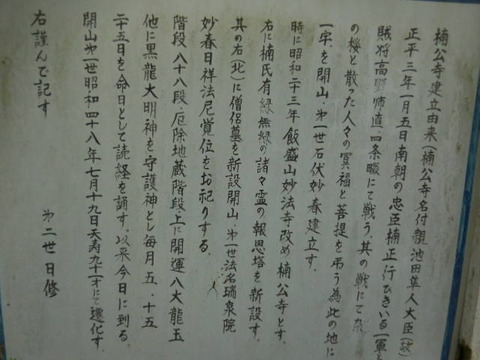 楠公寺建立由来(楠公寺名付親 池田隼人大臣
正平三年一月五日南朝の忠臣楠正行ひきいる一軍と
賊将高野師直四条畷にて戦う。其の戦にて
の桜と散った人々の冥福と菩提を弔う為此の地に
一宇を開山 第一世石伏妙春建立す。
時に昭和二十三年 飯盛山妙法寺改め 楠公寺とす。
右に楠氏有縁無縁の諸々霊の報恩塔を新設す。
其の右(北)に僧侶墓を新設開山 第一世法名瑞泉院
妙春日祥法尼賞位をお祀りする。
階段八十八段、厄除地蔵階段上に開運八大龍王
他に黒龍大明神を守護神とし毎月五・十五
二十五日を命日として読経を誦す。以来今日に到る。
開山第一世昭和四十八年七月十九日天寿九十一才にて遷化す。
第二世 日修
右謹んで記す